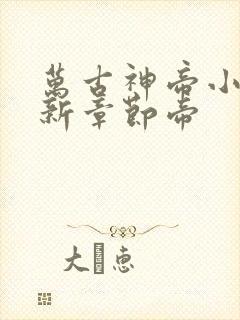 萬古神帝小
新章節帝
大 恵